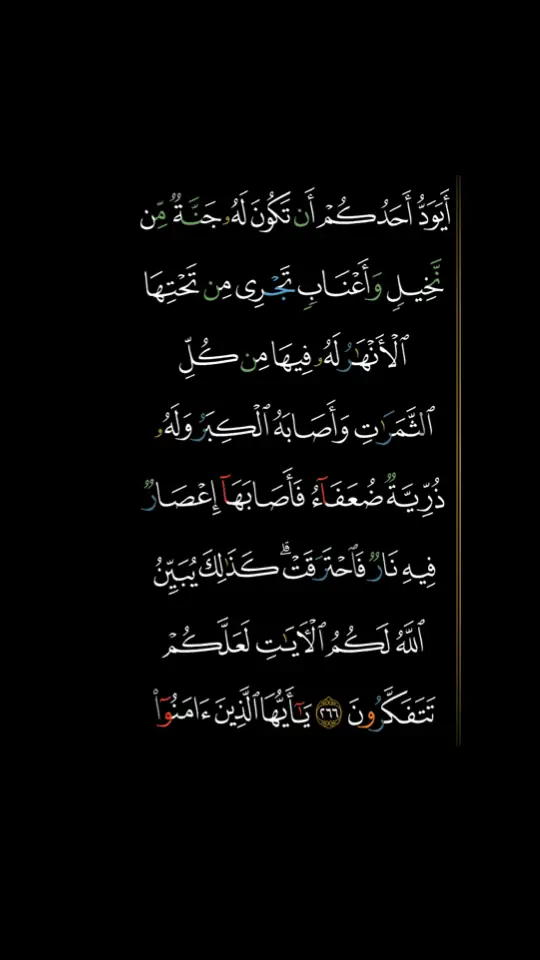 أَيَوَدُّ أَحَدُكُمْ أَن تَكُونَ لَهُۥ جَنَّةٌۭ مِّن
نَّخِيلٍۢ وَأَعْنَابٍۢ تَجْرِى مِن تَحْتِهَا
ٱلْأَنْهَـٰرُ لَهُۥ فِيهَا مِن كُلِّ
ٱلثَّمَرَٰتِ وَأَصَابَهُ ٱلْكِبَرُ وَلَهُۥ
ذُرِّيَّةٌۭ ضُعَفَآءُ فَأَصَابَهَآ إِعْصَارٌۭ
فِيهِ نَارٌۭ فَٱحْتَرَقَتْ ۗ كَذَٰلِكَ يُبَيِّنُ
ٱللَّهُ لَكُمُ ٱلْـَٔايَـٰتِ لَعَلَّكُمْ
تَتَفَكَّرُونَ ٢٦٦ يَـٰٓأَيُّهَا ٱلَّذِينَ ءَامَنُوٓا۟